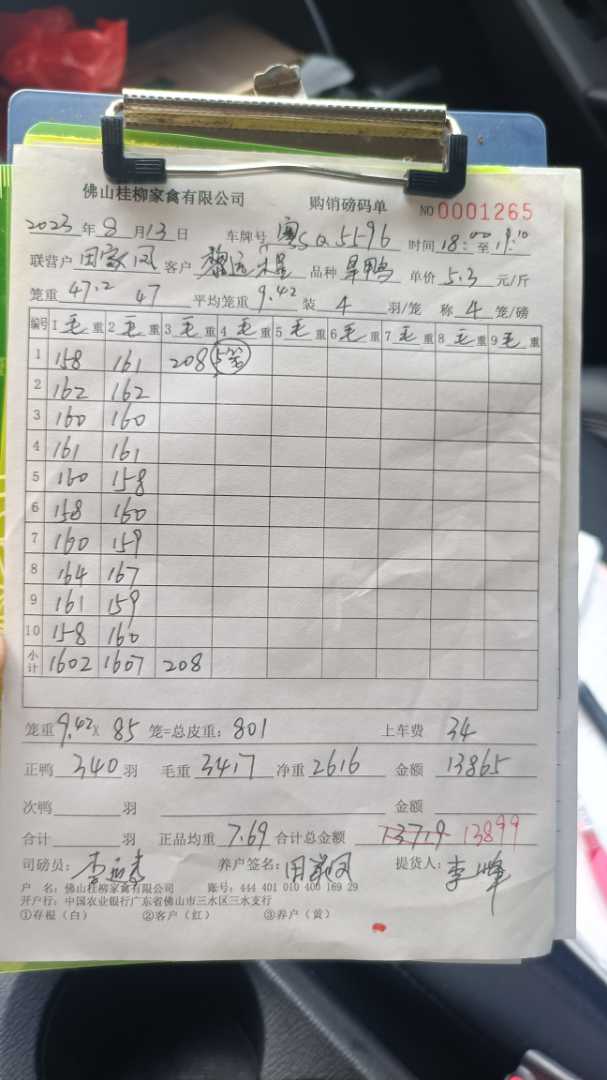 佛山桂柳家禽有限公司 购销磅码单 NO 0001265
2023 年 8 月 13 日 车牌号 粤SQ5596 时间 18:00 至 19:10
联营户 客户 黎 品种 旱鸭 单价 5.3 元/斤
笼重 47.2 47 平均笼重 9.42 装 4 羽/笼 称 4 笼/磅
编号 1 毛 重 2 毛 重 3 毛 重 4 毛 重 5 毛 重 6 毛 重 7 毛 重 8 毛 重 9 毛 重
1 158 161 208 5笼
2 162 162
3 160 160
4 161 161
5 160 158
6 158 160
7 160 159
8 164 167
9 161 159
10 158 160
小计 1602 1607 208
笼重 9.42 X 85 笼=总皮重: 801 上车费 34
正鸭 340 羽 毛重 3417 净重 2616 金额 13865
次鸭 羽 金额
合计 羽 正品均重 7.69 合计总金额 13719 13899
司磅员: 李 养户签名: 提货人: 李峰
户 名: 佛山桂柳家禽有限公司 账号: 444 401 010 400 169 29
开户行: 中国农业银行广东省佛山市三水区三水支行
①存根（白） ②客户（红） ③养户（黄）